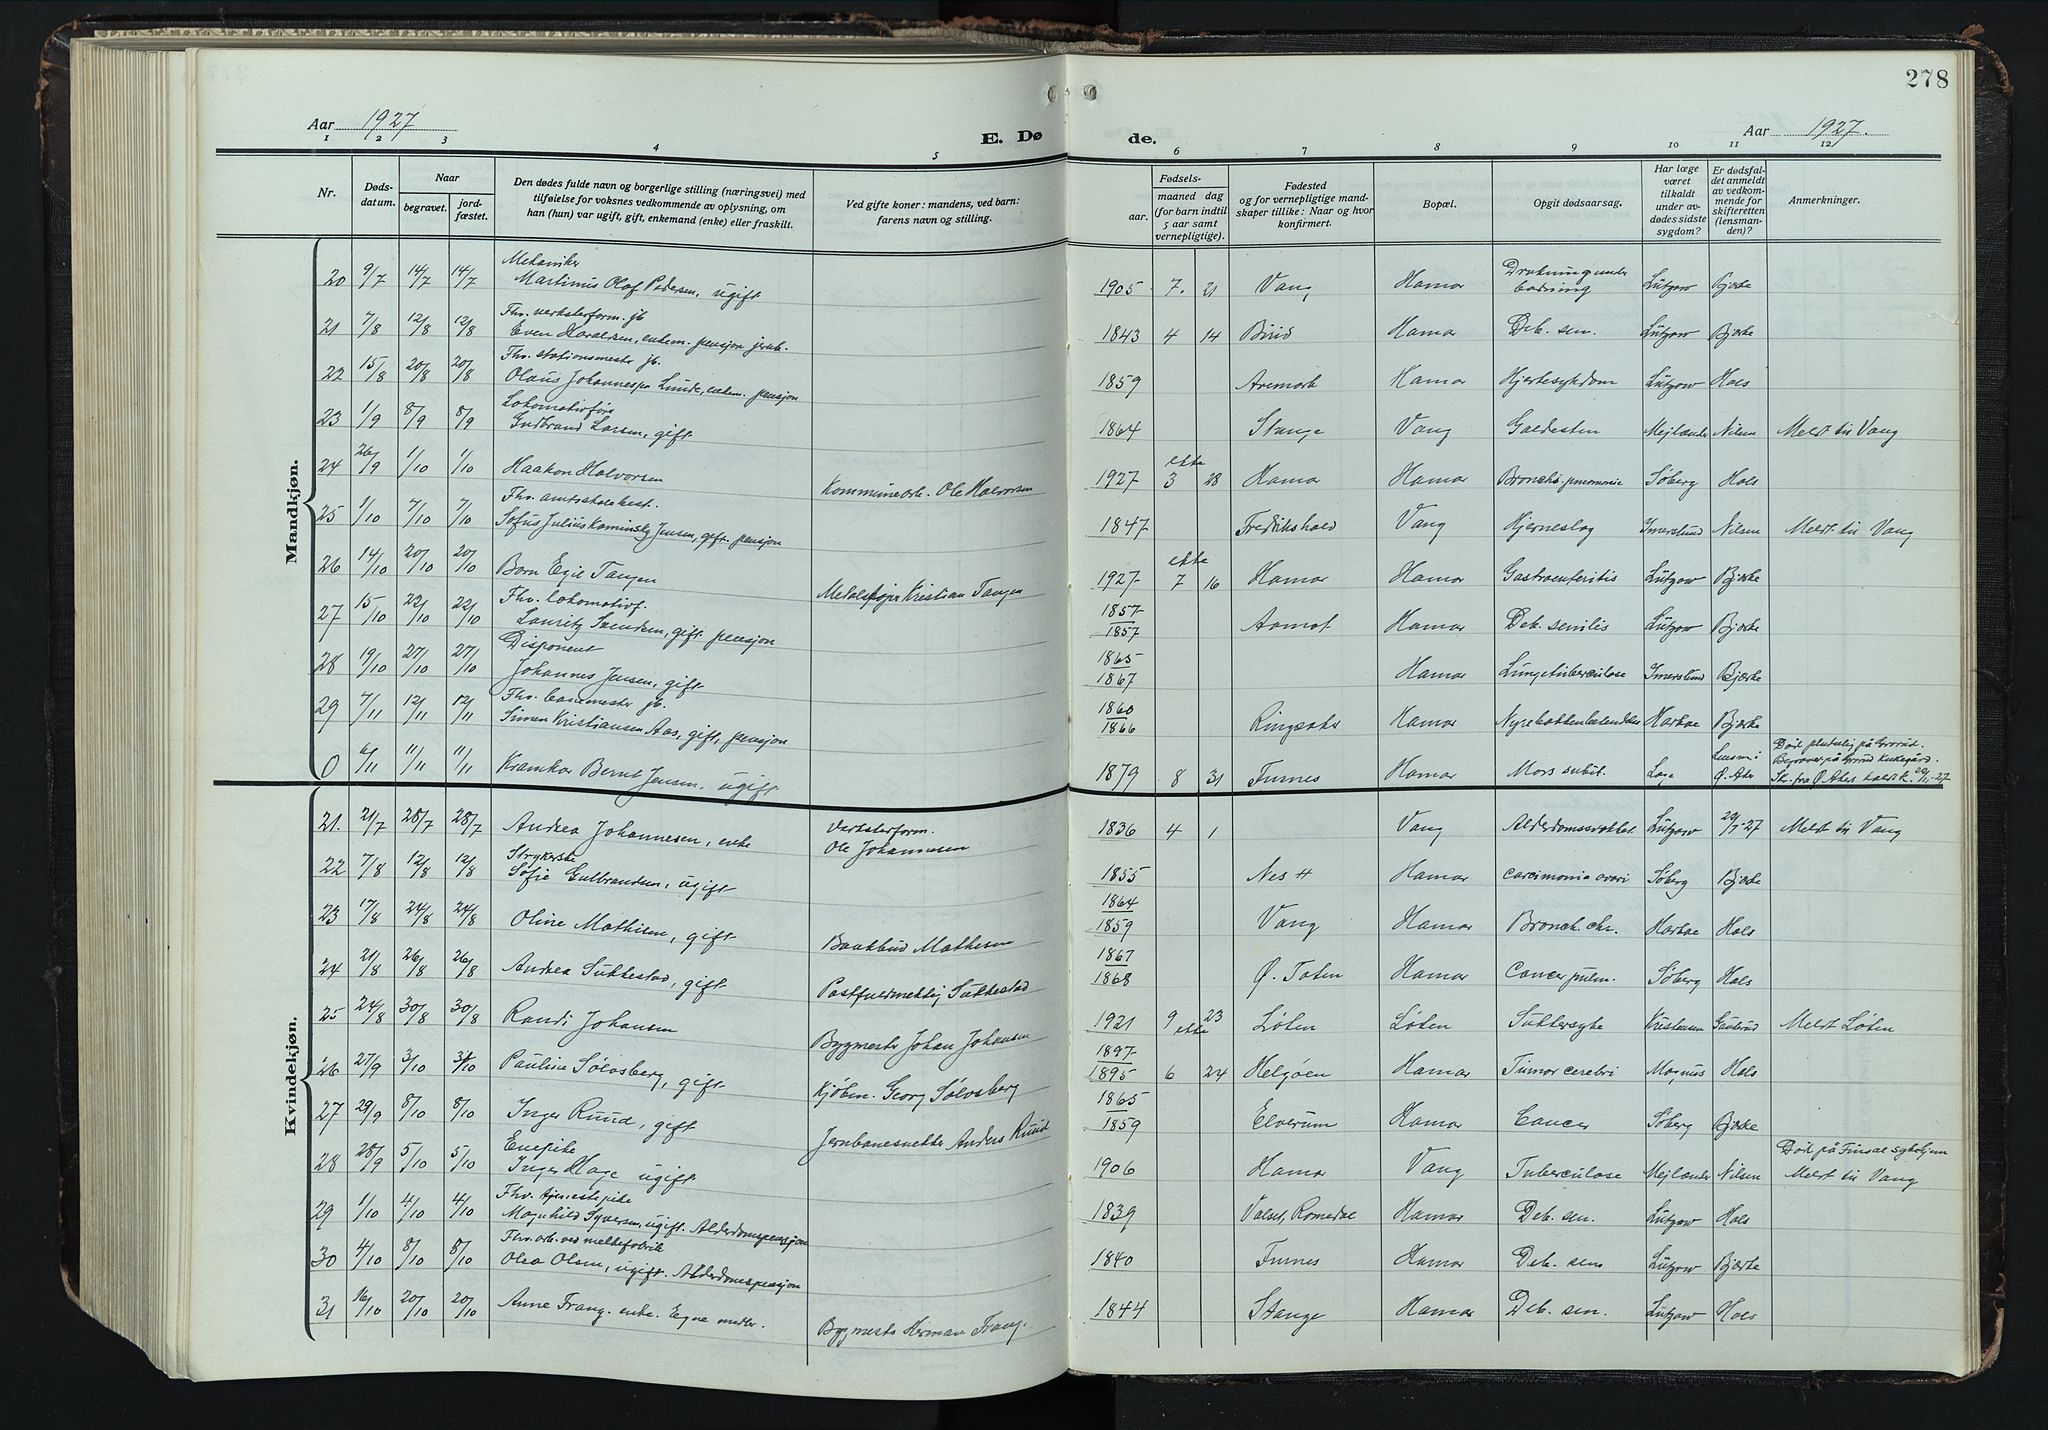 278
Aar 1927
E. Dø
de.
Aar 1927.
1 2 3 4 5 6 7 8 9 10 11 12
Nr.
Døds-
datum.
Naar
begravet.
jord-
fæstet.
Den dødes fulde navn og borgerlige stilling (næringsvei) med
tilføielse for voksnes vedkommende av oplysning, om
han (hun) var ugift, gift, enkemand (enke) eller fraskilt.
Ved gifte koner: mandens, ved barn:
farens navn og stilling.
Fødsels-
aar.
maaned dag
(for barn indtil
5 aar samt
vernepligtige).
Fødested
og for vernepligtige mand-
skaper tillike: Naar og hvor
konfirmert.
Bopæl.
Opgit dødsaarsag.
Har læge
været
tilkaldt
under av-
dødes sidste
sygdom?
Er dødsfal-
det anmeldt
av vedkom-
mende for
skifteretten
(lensman-
den)?
Anmerkninger.
Mandkjøn.
Mekaniker
20 9/7 14/7 14/7 Martinus Olaf Pedersen, ugift 1905 7. 21 Vang Hamor Drukning under badning Lützow Bjerke
Fhv. verksterform. jb
21 7/8 12/8 12/8 Even Haralsen, enkem. pensjon jernb. 1843 4 14 Birid Hamar Deb. sen. Lützow Bjerke
Fhv. stationsmester jb.
22 15/8 20/8 20/8 Olaus Johannes Lunde, enkem. pensjon 1859 Aremark Hamar Hjertesykdom Lützow Hals
Lokomotivfører
23 1/9 8/9 8/9 Gudbrand Larsen, gift 1864 Stange Vang Galdesten Mejlænder Nilsen Meldt til Vang
24 26/9 1/10 1/10 Haakon Halvorsen Kommunearb. Ole Halvorsen 1927 ekte 3 28 Hamar Hamar Broncho-pneumonie Søberg Hals
Fhv. amtsskolebest.
25 1/10 7/10 7/10 Sofus Julius Kaminsky Jensen, gift. pensjon 1847 Fredrikshald Vang Hjerneslag Imerslund Nilsen Meldt til Vang
26 14/10 20/10 20/10 Barn Egil Tangen Kristian Tangen 1927 ekte 7 16 Hamar Hamar Gastroenteritis Lützow Bjerke
Fhv. lokomotivf.
27 15/10 22/10 22/10 Lauritz Svendsen, gift. pensjon 1857 1857 Aamot Hamar Deb. senilis Lützow Bjerke
Disponent
28 19/10 27/10 27/10 Johannes Jensen, gift 1865 1867 Hamar Lungetuberculose Imerslund Bjerke
Fhv. banemester jb.
29 7/11 12/11 12/11 Simen Kristiansen Aas, gift, pensjon 1860 1866 Ringsaker Hamar Nyrebækkenbetændelse Harboe Bjerke
0 6/11 11/11 11/11 Kramkar Bernt Jensen. ugift 1879 8 31 Furnes Hamar Mors subit. Lensm. i Ø. Aker Død pludselig på Grorud. Begraves på Grorud kirkegård. Sk. fra Ø Aker
Kvindekjøn.
21. 21/7 28/7 28/7 Andrea Johannesen, enke Verksterform. Ole Johannesen 1836 4 1 Vang Alderdomssvækket Lützow 29/7-27 Meldt til Vang
Strykerske
22 7/8 12/8 12/8 Sofie Gulbrandsen, ugift 1855 Nes H Hamar carcinomia ovari Søberg Bjerke
23 17/8 24/8 24/8 Oline Mathisen, gift Bankbud Mathesen 1864 1859 Vang Hamar Bronch. chr. Harboe Hals
24 21/8 26/8 26/8 Andrea Sukkestad, gift Postfuldmektig Sukkestad 1867 1868 Ø. Toten Hamar Cancer pulm. Søberg Hals
25 24/8 30/8 30/8 Randi Johansen Bygmester Johan Johansen 1921 9 23 ekte Løten Løten Sukkersyke Kristensen Meldt Løten
26 27/9 3/10 3/10 Pauline Sølvsberg, gift Kjøbm. Georg Sølvsberg 1897 1895 6 24 Helgøen Hamar Tumor cerebri Magnus Hals
27 29/9 8/10 8/10 Inger Ruud, gift Anders Ruud 1865 1859 Elverum Hamar Cancer Søberg Bjerke
28 28/9 5/10 5/10 Inger Hage ugift 1906 Hamar Vang Tuberculose Mejlænder Nilsen Død på Finsal sykehjem Meldt til Vang
Fhv. tjenestepike
29 1/10 4/10 4/10 Magnhild Syversen, ugift. Alderdomspensjon 1839 Valset, Romedal Hamar Deb. sen. Lützow Hals
Fhv. arb. ved melkefabrik
30 4/10 8/10 8/10 Olea Olsen, ugift. Alderdomspensjon 1840 Furnes Hamar Deb. sen Lützow Bjerke
31 16/10 20/10 20/10 Anne Frang. enke. Egne midler. Bygmester Herman Frang. 1844 Stange Hamar Deb. sen. Lützow Hals